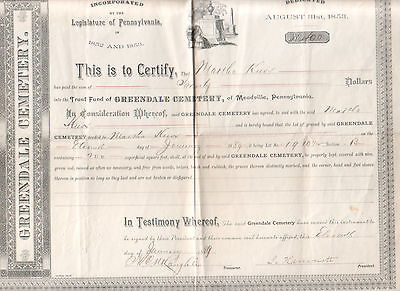 INCORPORATED
BY THE
Legislature of Pennsylvania,
IN
1852 AND 1853.
DEDICATED
AUGUST 31st, 1853.
GREENDALE CEMETERY.
This is to Certify, That Martha
has paid the sum of Dollars
into the Trust Fund of GREENDALE CEMETERY, of Meadville, Pennsylvania.
In Consideration Whereof, said GREENDALE CEMETERY agrees to, and with the said Martha
and is hereby bound that the lot of ground by said GREENDALE
CEMETERY Martha on the
day of January 189 being Lot No. Section B
containing superficial square feet, shall, at the end of and by said GREENDALE CEMETERY, be properly kept, covered with
green sod, mowed as often as necessary, raked and cleaned, the graves thereon distinctly marked, and the corner-land marks preserved in
position so long as they last and are not destroyed or otherwise injured.
In Testimony Whereof, The said Greendale Cemetery have caused this instrument to
be signed by their President and their common seal hereunto affixed, this
day of January
Treasurer.